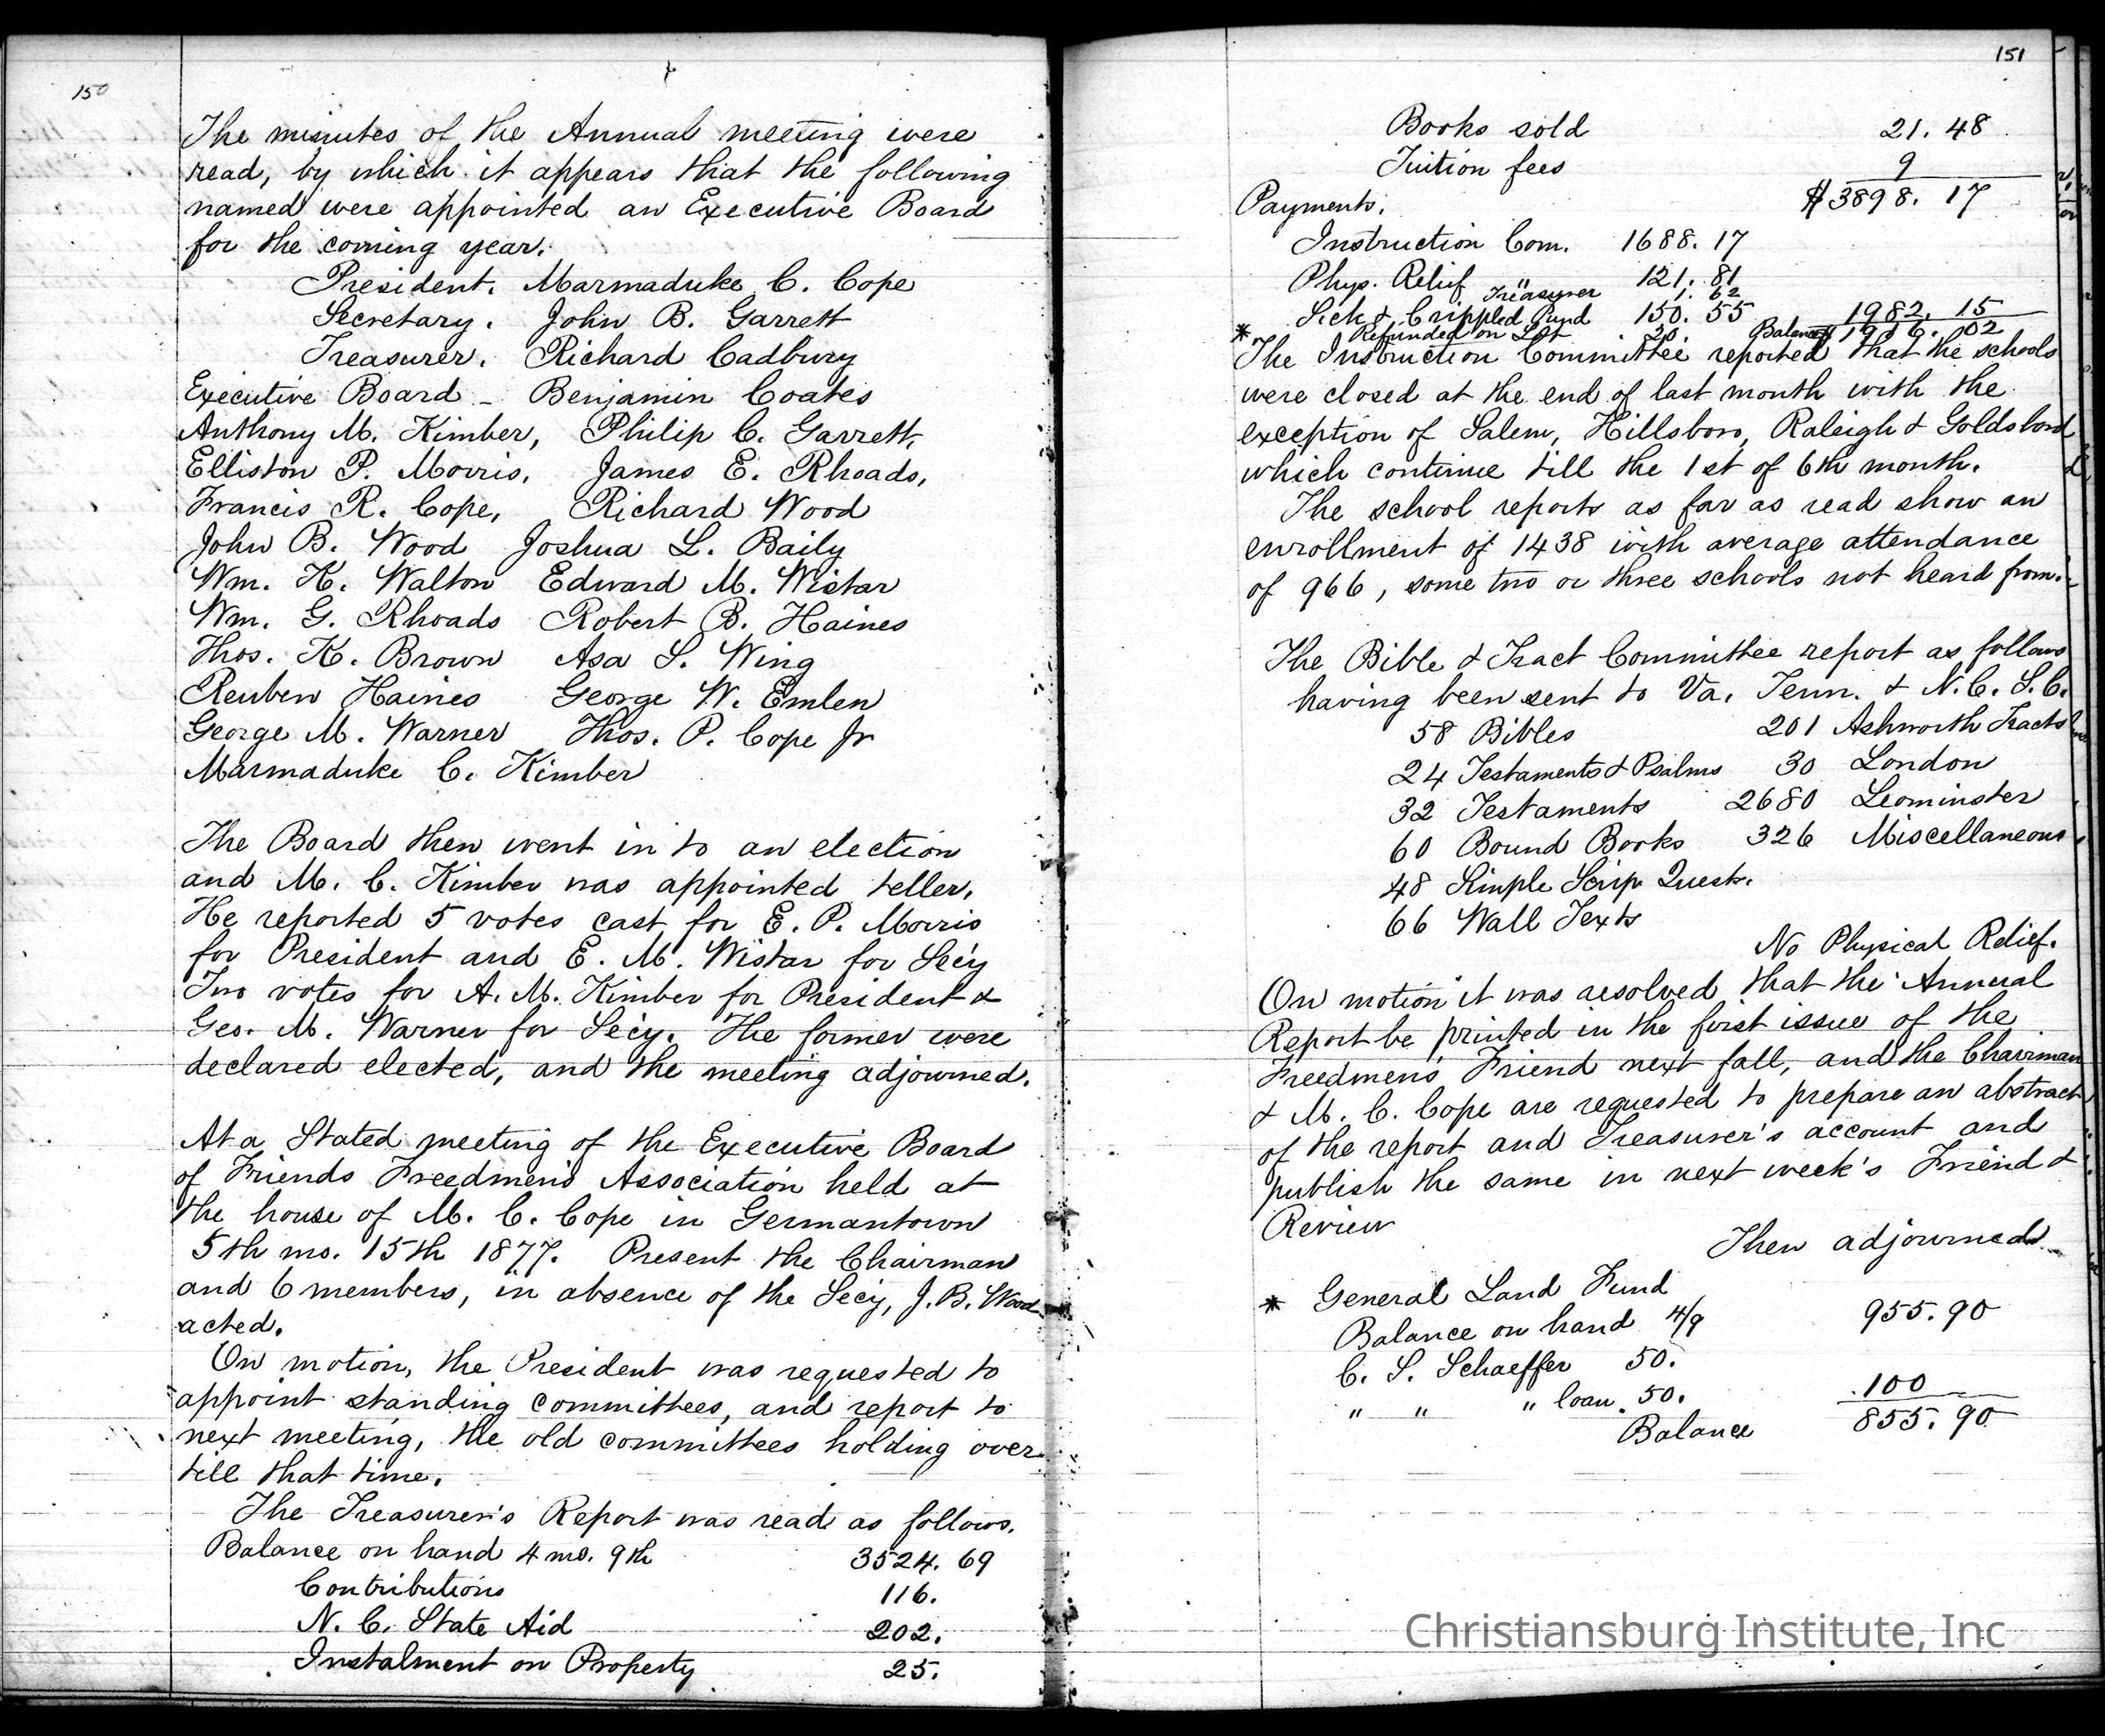 150
The minutes of the Annual meeting were
read, by which it appears that the following
named were appointed an Executive Board
for the coming year.
President. Marmaduke C. Cope
Secretary. John B. Garrett
Treasurer. Richard Cadbury
Executive Board - Benjamin Coates
Anthony M. Kimber, Philip C. Garrett,
Elliston P. Morris, James E. Rhoads,
Francis R. Cope, Richard Wood
John B. Wood Joshua L. Baily
Wm. K. Walton Edward M. Wistar
Wm. G. Rhoads Robert B. Haines
Thos. K. Brown Asa S. Wing
Reuben Haines George W. Emlen
George M. Warner Thos. P. Cope Jr
Marmaduke C. Kimber
The Board then went in to an election
and M. C. Kimber was appointed teller.
He reported 5 votes cast for E. P. Morris
for President and E. M. Wistar for Secy
Two votes for A. M. Kimber for President &
Geo. M. Warner for Secy. The former were
declared elected, and the meeting adjourned.
At a Stated meeting of the Executive Board
of Friends Freedmens Association held at
the house of M. C. Cope in Germantown
5th mo. 15th 1877. Present the Chairman
and 6 members, in absence of the Secy, J. B. Wood
acted.
On motion, the President was requested to
appoint standing committees, and report to
next meeting, the old committees holding over
till that time.
The Treasurer's Report was read as follows.
Balance on hand 4 mo. 9th 3524. 69
Contributions 116.
N. C. State Aid 202.
Instalment on Property 25.
151
Books sold 21. 48
Tuition fees 9
Payments. $3898. 17
Instruction Com. 1688. 17
Phys. Relief " 121. 81
Treasurer 1. 62
Sick & Crippled Fund 150. 55 1982. 15
* Refunded on Lot 20. Balance $1916. 02
The Instruction Committee reported that the schools
were closed at the end of last month with the
exception of Salem, Hillsboro, Raleigh & Goldsboro
which continue till the 1st of 6th month.
The school reports as far as read show an
enrollment of 1438 with average attendance
of 966, some two or three schools not heard from.
The Bible & Tract Committee report as follows
having been sent to Va. Tenn. & N. C. S. C.
58 Bibles 201 Ashworth Tracts
24 Testaments & Psalms 30 London
32 Testaments 2680 Leominster
60 Bound Books 326 Miscellaneous
48 Simple Scrip Quest.
66 Wall Texts
No Physical Relief.
On motion it was resolved that the Annual
Report be printed in the first issue of the
Freedmen's Friend next fall, and the Chairman
& M. C. Cope are requested to prepare an abstract
of the report and Treasurer's account and
publish the same in next week's Friend &
Review
Then adjourned.
* General Land Fund
Balance on hand 4/9 955. 90
C. S. Schaeffer 50.
" " " loan 50. 100
Balance 855. 90
Christiansburg Institute, Inc